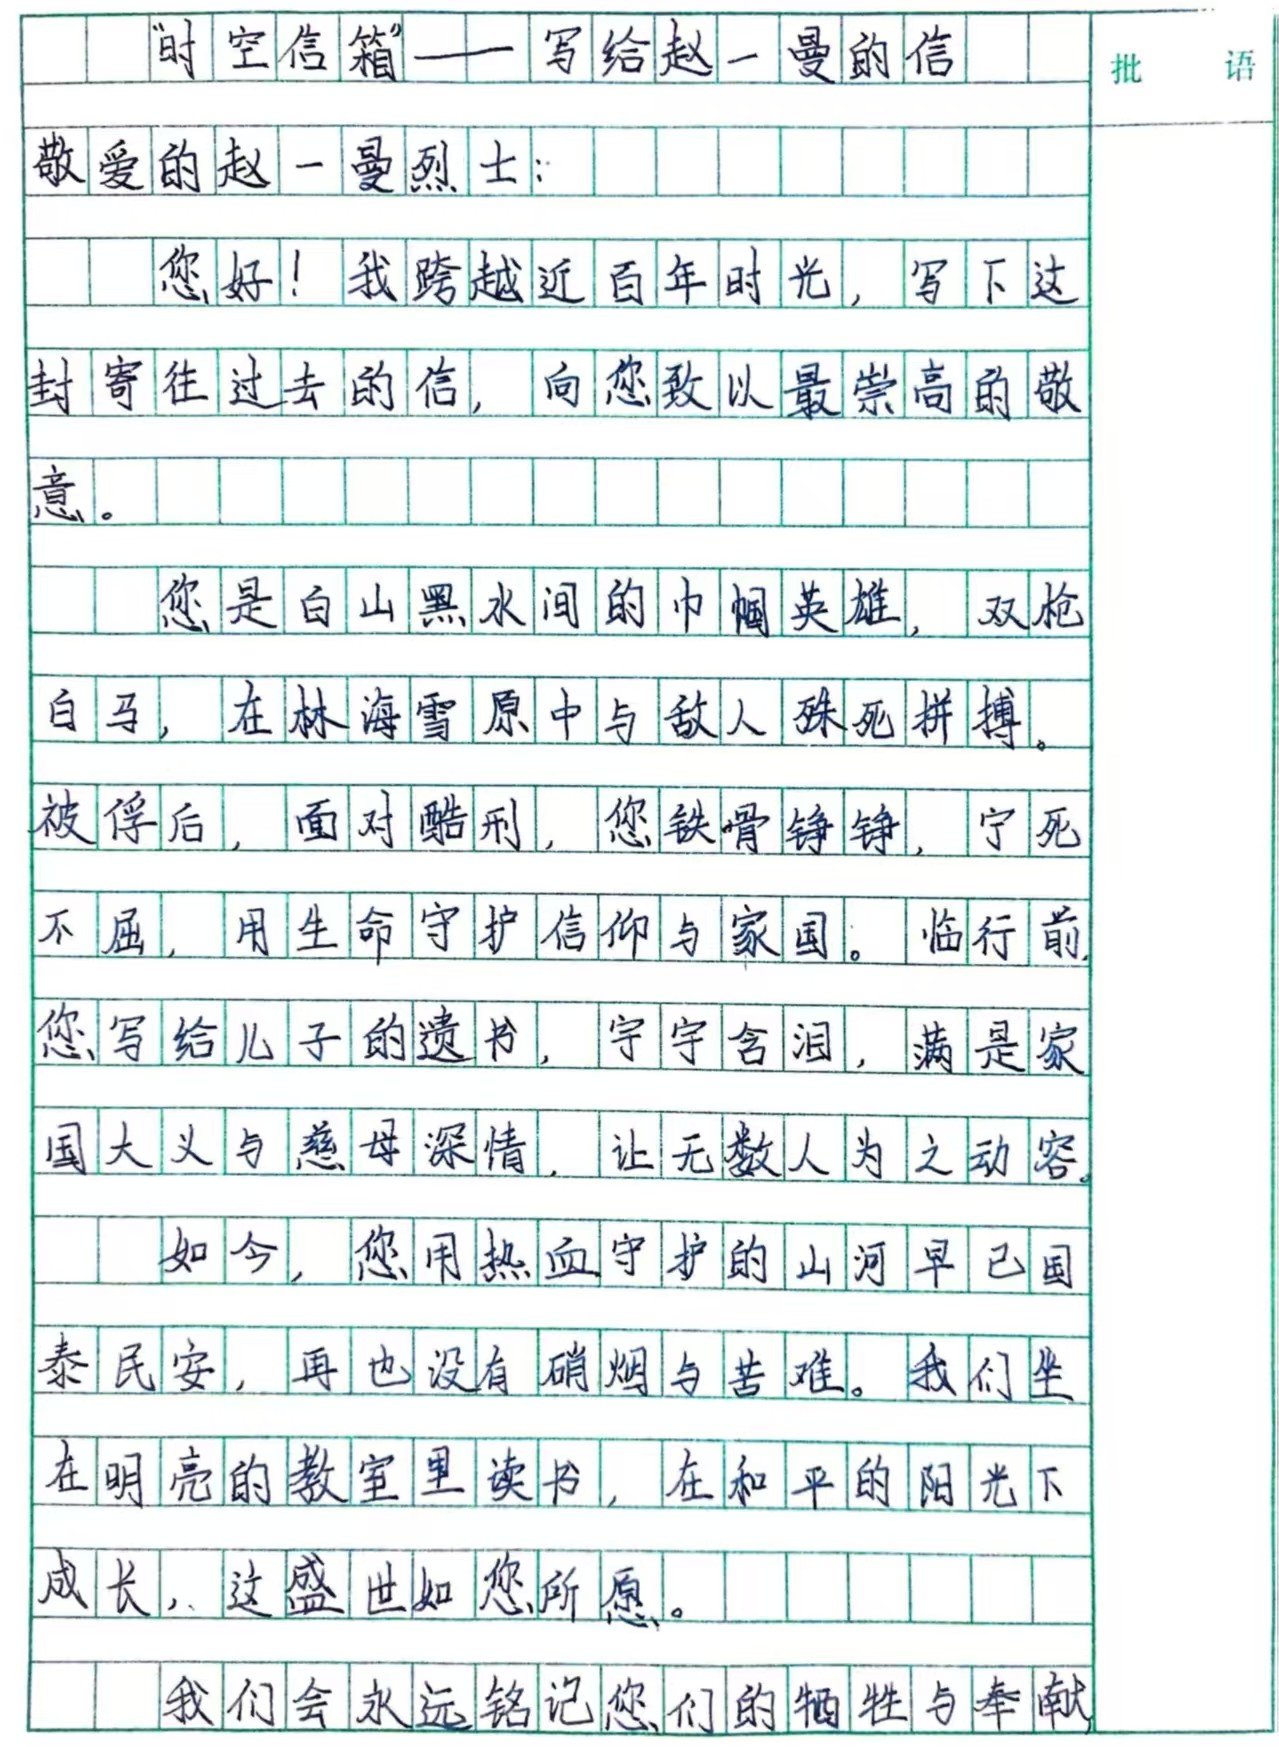 “时空信箱”——写给赵一曼的信
批 语
敬爱的赵一曼烈士：
您好！我跨越近百年时光，写下这
封寄往过去的信，向您致以最崇高的敬
意。
您是白山黑水间的巾帼英雄，双枪
白马，在林海雪原中与敌人殊死拼搏。
被俘后，面对酷刑，您铁骨铮铮，宁死
不屈，用生命守护信仰与家国。临行前，
您写给儿子的遗书，字字含泪，满是家
国大义与慈母深情，让无数人为之动容。
如今，您用热血守护的山河早已国
泰民安，再也没有硝烟与苦难。我们坐
在明亮的教室里读书，在和平的阳光下
成长，这盛世如您所愿。
我们会永远铭记您们的牺牲与奉献